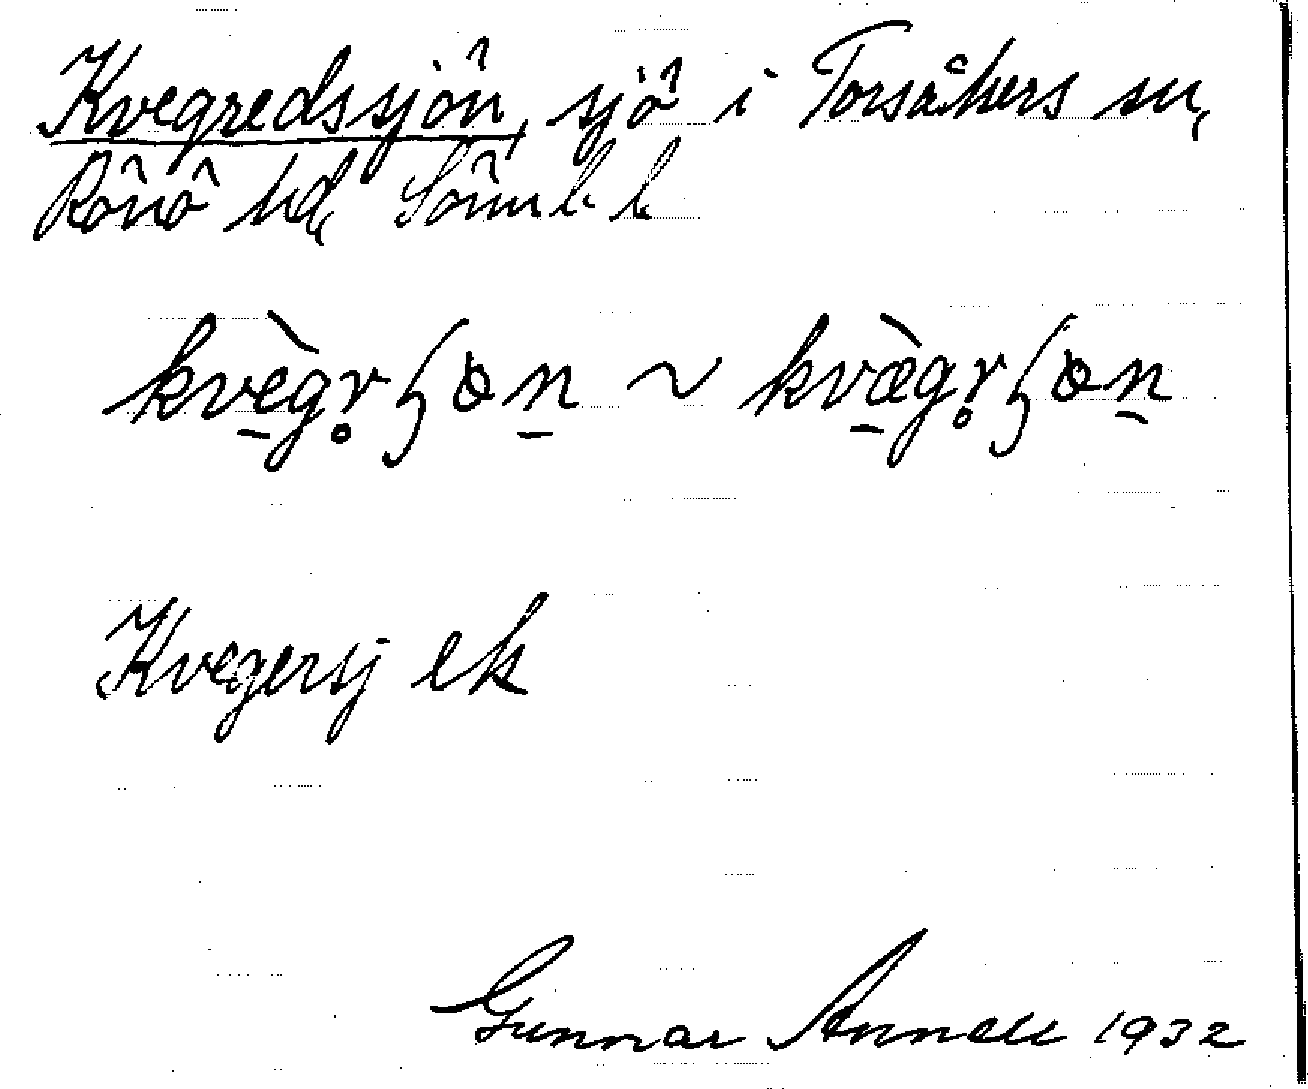 Kvegredssjön, sjö i Torsåkers sn,
Rönö hd, Söm l. l
kvègr̥ʃɷn ~ kvæ̀gr̥ʃɷn
Kvegersj ek
Gunnar Annell 1932